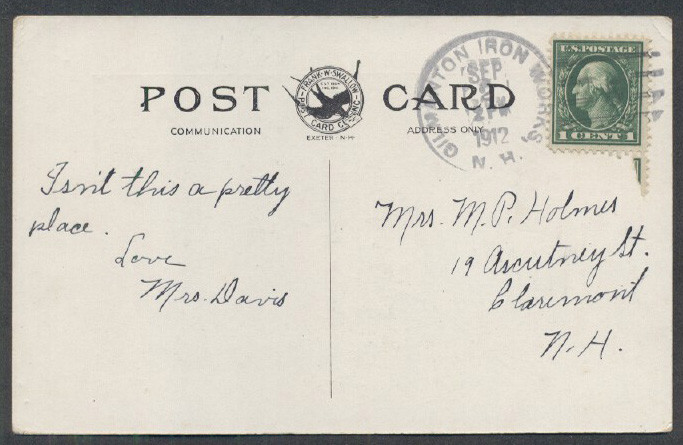 POST CARD
COMMUNICATION
ADDRESS ONLY
FRANK·W·SWALLOW
POST CARD CO. INC.
EXETER·N·H·
GILMANTON IRON WORKS
SEP
2 PM
1912
N. H.
U.S. POSTAGE
1 CENT 1
Isn't this a pretty
place.
Love
Mrs. Davis
Mrs. M. P. Holmes
19 Ascutney St.
Claremont
N. H.